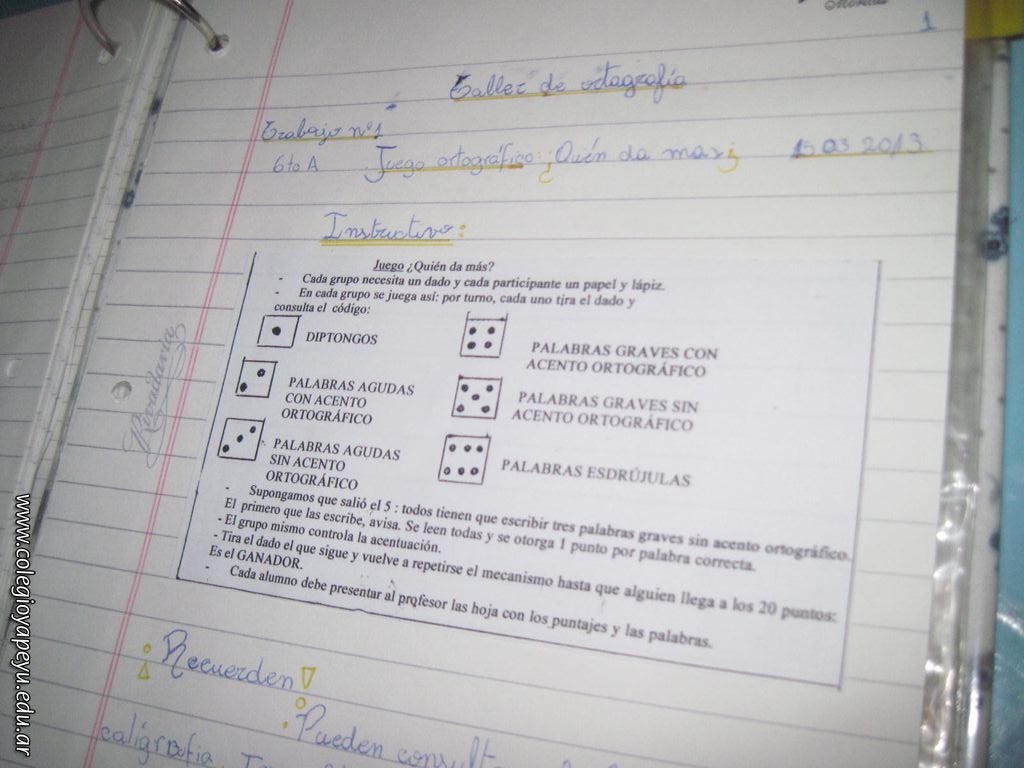 1
Taller de ortografía
Trabajo nº1
6to A Juego ortográfico: ¿Quién da mas? 15 03 2013
Instructivo:
Juego ¿Quién da más?
- Cada grupo necesita un dado y cada participante un papel y lápiz.
- En cada grupo se juega así: por turno, cada uno tira el dado y
consulta el código:
DIPTONGOS
PALABRAS AGUDAS
CON ACENTO
ORTOGRÁFICO
PALABRAS AGUDAS
SIN ACENTO
ORTOGRÁFICO
PALABRAS GRAVES CON
ACENTO ORTOGRÁFICO
PALABRAS GRAVES SIN
ACENTO ORTOGRÁFICO
PALABRAS ESDRÚJULAS
- Supongamos que salió el 5 : todos tienen que escribir tres palabras graves sin acento ortográfico.
El primero que las escribe, avisa. Se leen todas y se otorga 1 punto por palabra correcta.
- El grupo mismo controla la acentuación.
- Tira el dado el que sigue y vuelve a repetirse el mecanismo hasta que alguien llega a los 20 puntos:
Es el GANADOR.
- Cada alumno debe presentar al profesor las hoja con los puntajes y las palabras.
Rivadavia
¡Recuerden!
Pueden
caligrafia
www.colegioyapeyu.edu.ar